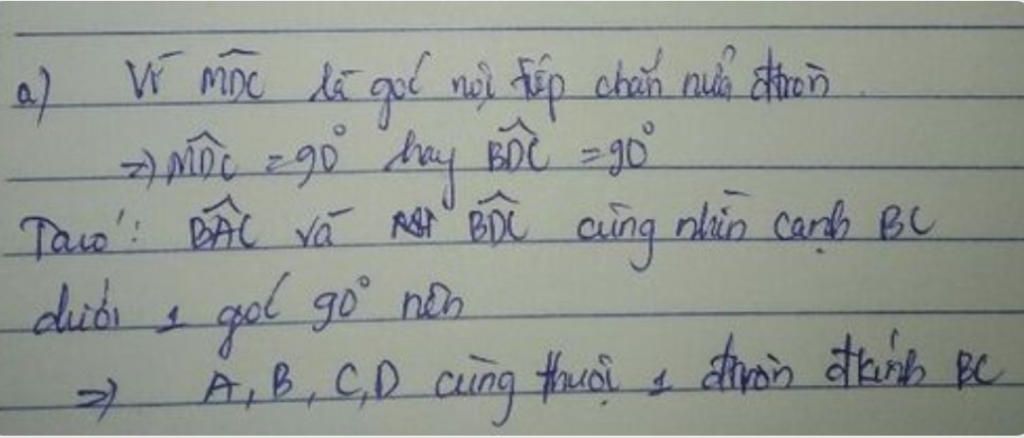 a) Vì MDC là góc nội tiếp chắn nửa đtròn
=> MDC = 90° hay BDC = 90°
Ta có: BAC và BDC cùng nhìn cạnh BC
dưới 1 góc 90° nên
=> A, B, C, D cùng thuộc 1 đtròn đkính BC